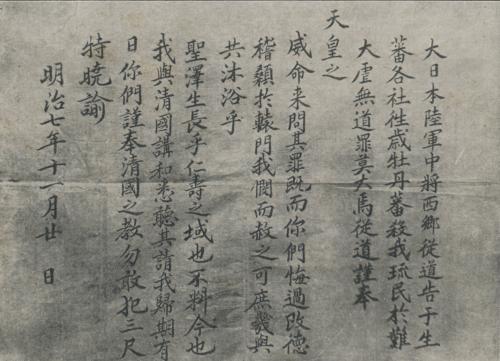 大日本陸軍中將西鄉從道告于生
蕃各社徃歳牡丹蕃殺我琉民於難
大虐無道罪莫大焉從道謹奉
天皇之
威命来問其罪既而你們悔過改德
稽顙於轅門我憫而赦之可庶幾與
共沐浴乎
聖澤生長乎仁壽之域也不料今也
我與清國講和悉聽其請我歸期有
日你們謹奉清國之教勿敢犯三尺
特曉諭
明治七年十一月廿 日